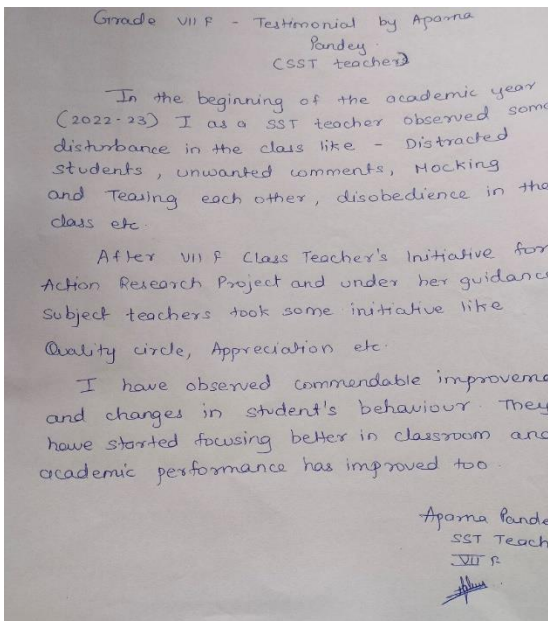 Grade VII F - Testimonial by Aparna
Pandey
(SST teacher)
In the beginning of the academic year
(2022-23) I as a SST teacher observed some
disturbance in the class like - Distracted
students, unwanted comments, Mocking
and Teasing each other, disobedience in the
class etc.
After VII F Class Teacher's Initiative for
Action Research Project and under her guidanc
subject teachers took some initiative like
Quality circle, Appreciation etc.
I have observed commendable improveme
and changes in student's behaviour. They
have started focusing better in classroom and
academic performance has improved too.
Aparna Pande
SST Teach
VII F